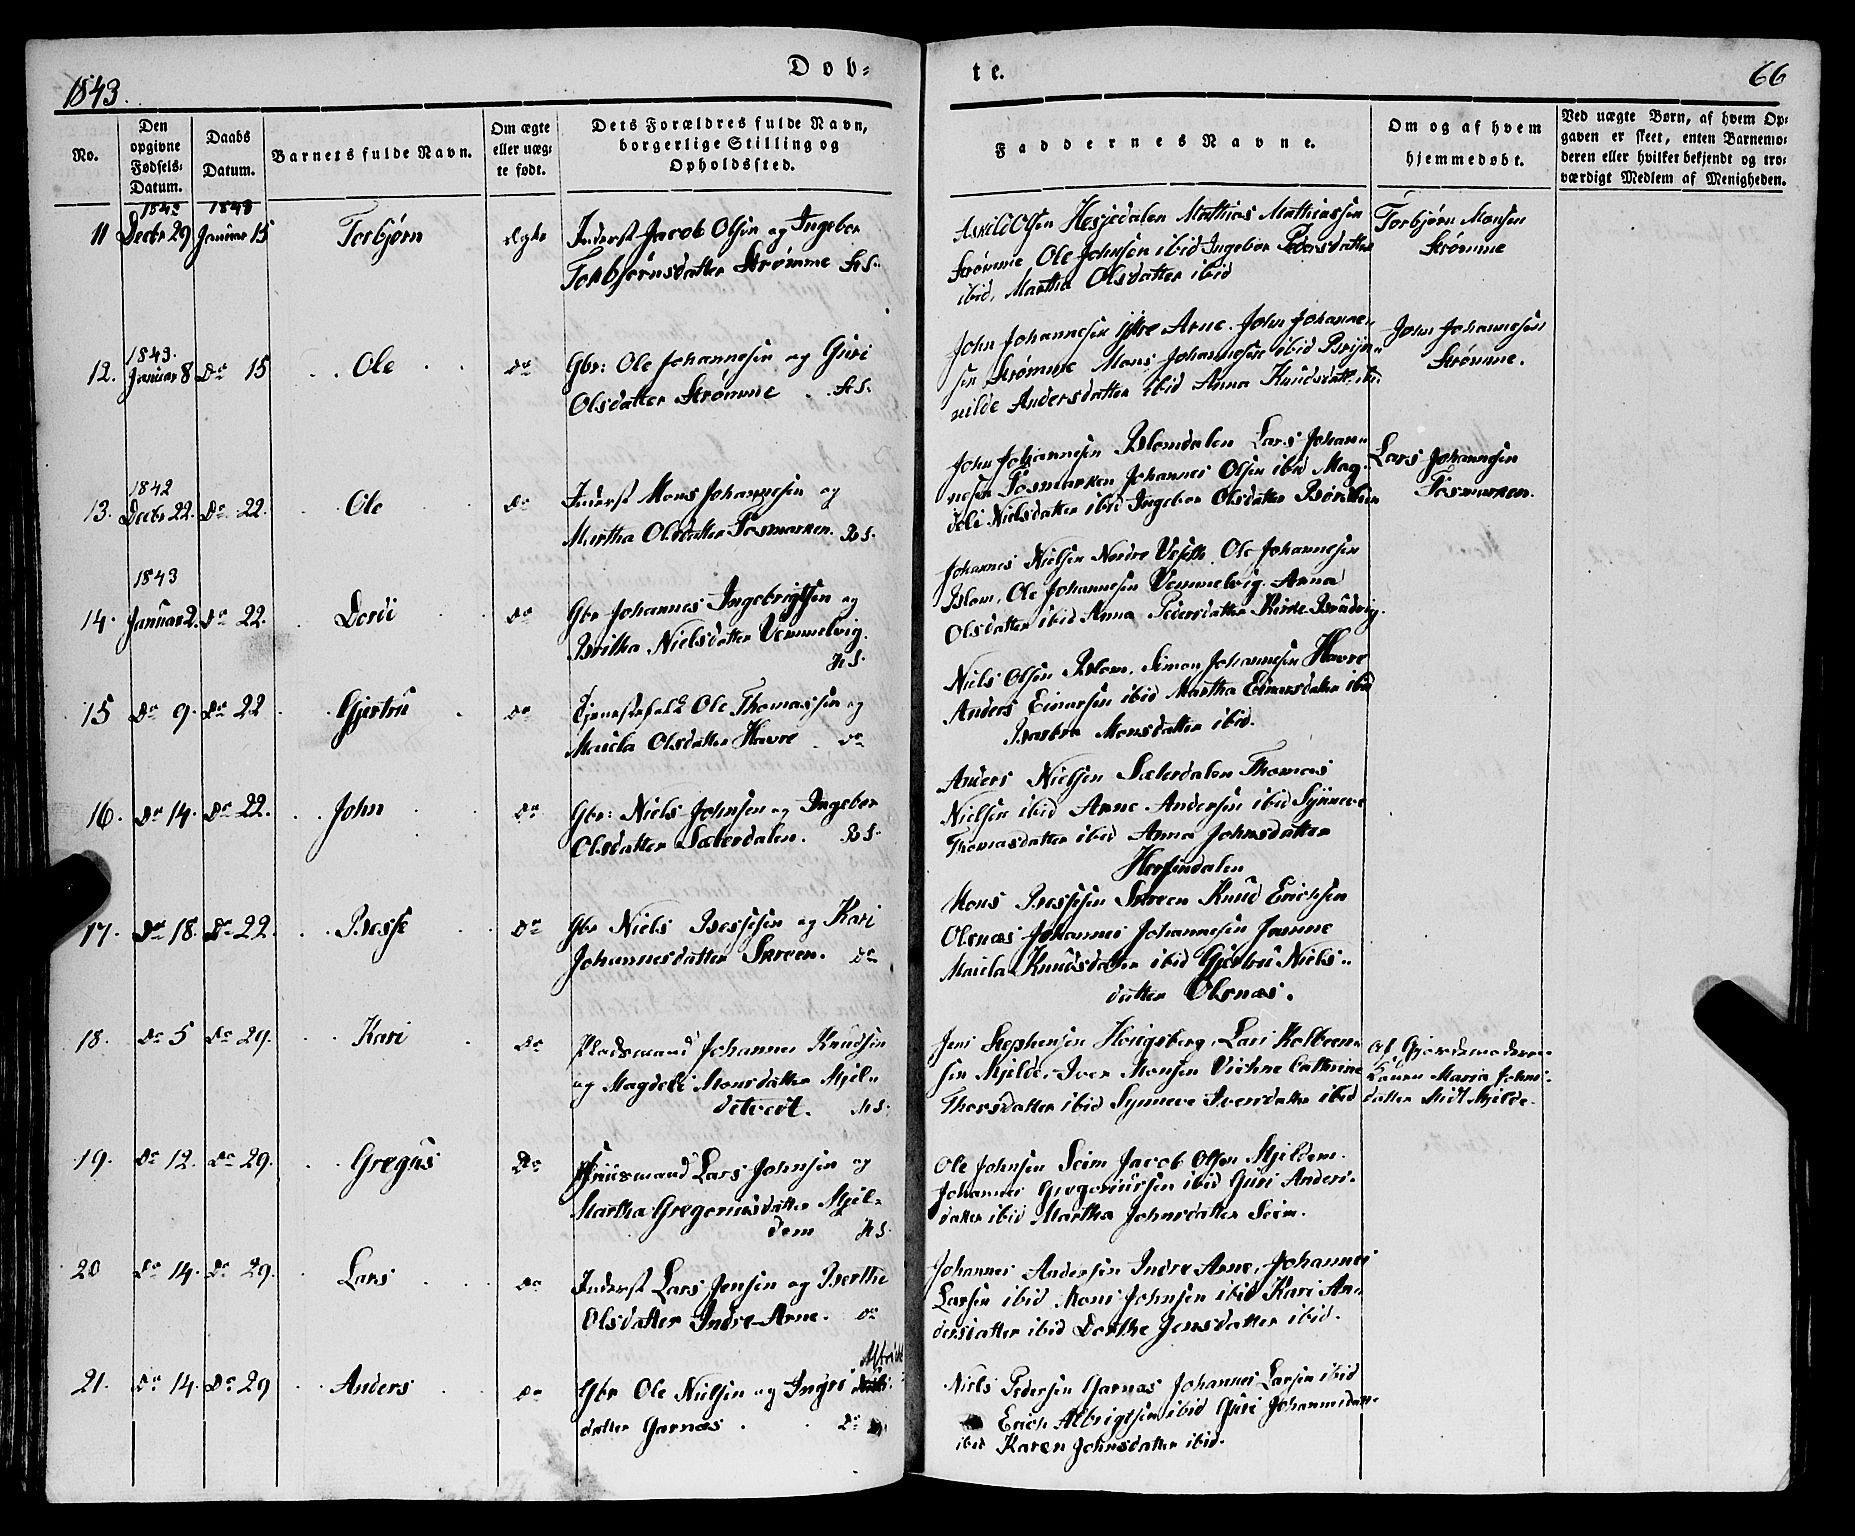 1843.
Døb=
te.
66
No.
Den opgivne Fødsels-Datum.
Daabs Datum.
Barnets fulde Navn.
Om ægte eller uæg-te født.
Dets Forældres fulde Navn, borgerlige Stilling og Opholdssted.
Faddernes Navne.
Om og af hvem hjemmedøbt.
Ved uægte Børn, af hvem Op-gaven er skeet, enten Barnemo-deren eller hvilket bekjendt og tro-værdigt Medlem af Menigheden.
1842 1843
11 Decbr 29 Januar 15 Torbjørn ægte Inderst Jacob Olsen og Ingebor
Torbjørnsdatter Strømme
Olsen Hesjedalen Mathias Mathiassen
Strømme Ole Johnsen ibid Ingebor Pedersdatter
ibid, Martha Olsdatter ibid
Torbjørn Monsen
Strømme
1843.
12. Januar 8 Do 15 Ole Do Gbr: Ole Johannesen og Guri
Olsdatter Strømme
John Johannesen Arne. John Johanne-
sen Strømme Mons Johannesen ibid Brijn-
nilde Andersdatter ibid Anna Knudsdatt. ibi.
John Johannesen
Strømme.
1842
13. Decbr 22. Do 22. Ole Do Inderst Mons Johannesen og
Martha Olsdatter Fosmarken.
John Johannesen Blomdalen Lars Johan-
nesen Fosmarken Johannes Olsen ibid Mag-
deli Nielsdatter ibid Ingebor Olsdatter
Lars Johannesen
Fosmarken.
1843
14. Januar 2. Do 22. Dordi Do Gbr Johannes Ingebrigtsen og
Britha Nielsdatter Vemmelvig.
Johannes Nielsen Nordre Ole Johannesen
Blom, Ole Johannesen Vemmelvig. Anna
Olsdatter ibid Anna Pedersdatter Brudvig.
15 Do 9. Do 22 Gjertru Do Tjenestefolk Ole Thomassen og
Maricla Olsdatter Havre Do
Niels Olsen Blom. Simon Johannesen Havre
Anders Einarsen ibid Martha Einarsdatter ibid
Barbra Monsdatter ibid.
16. Do 14. Do 22. John Do Gbr: Niels Johnsen og Ingebor
Olsdatter Sæterdalen.
Anders Nielsen Sæterdalen Thomas
Nielsen ibid Arne Andersen ibid Synneve
Thomasdatter ibid Anna Johnsdatter
Herfindalen
17. Do 18. Do 22. Besse Do Gbr Niels Bessesen og Kari
Johannesdatter Skreen. Do
Mons Bessesen Skreen Knud Erichsen
Olsnæs Johannes Johannesen
Knudsdatter ibid Gjertru Niels-
datter Olsnæs.
18. Do 5 Do 29. Kari Do Pladsmand Johannes Knudsen
og Magdeli Monsdatter Mjel-
detvedt.
Jens Stephensen Lars Kolbeen-
sen Mjelde, Iver Monsen Cathrine
Thorsdatter ibid Synneve Iversdatter ibid
af Gjordemoderen
Maria Johns-
datter Midt Mjelde.
19. Do 12. Do 29. Gregus Do Lars Johnsen og
Martha Gregoriusdatter Mjel-
dem
Ole Johnsen Seim Jacob Olsen Mjeldem.
Johannes Gregoriussen ibid Guri Anders-
datter ibid Martha Johnsdatter Seim.
20 Do 14. Do 29. Lars Do Inderst Lars Jensen og Berthe
Olsdatter Indre-Arne. Do
Johannes Andersen Indre Arne, Johannes
Larsen ibid Mons Johnsen ibid Kari An-
dersdatter ibid Dorthe Jensdatter ibid.
21. Do 14. Do 29 Anders Do Gbr Ole Nielsen og Ingri
datter Garnæs Do
Niels Pedersen Garnæs Johannes Larsen ibid
Erich Albrigtsen ibid Guri Johannesdatt.
ibid Karen Johnsdatter ibid.